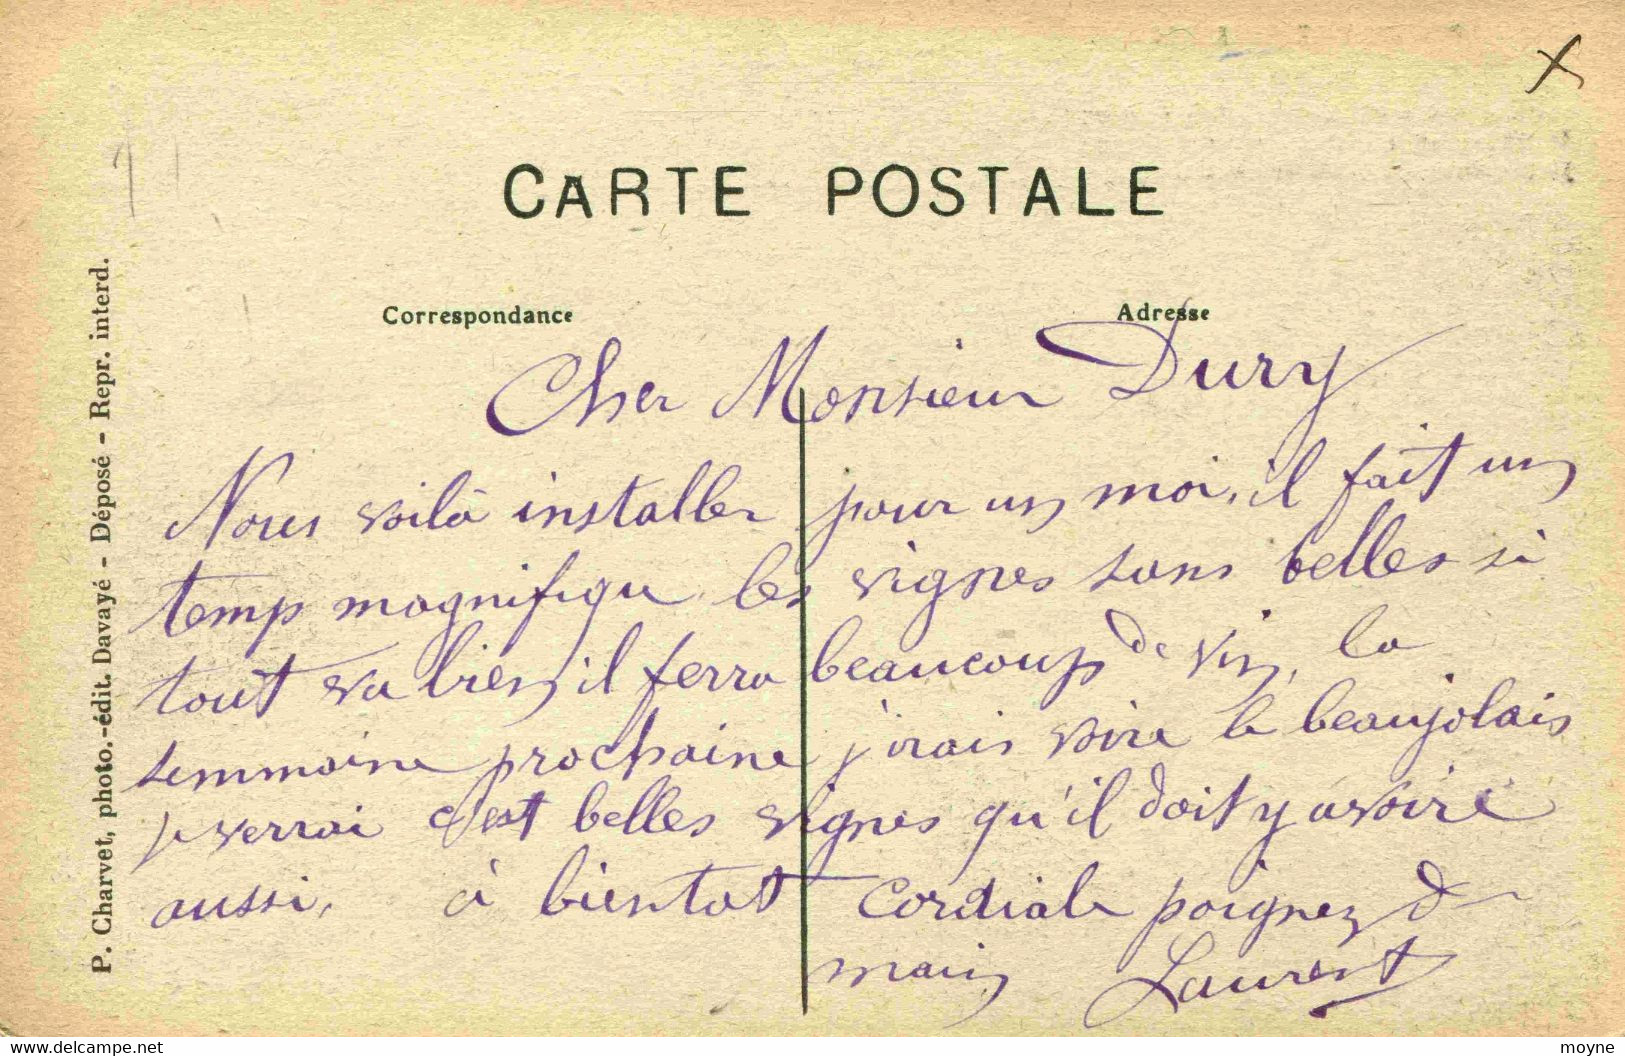 CARTE POSTALE
Correspondance
Adresse
Cher Monsieur Dury
Nous voilà installer pour un moi, il fait un
temp magnifique les vignes sons belles si
tout va bien il ferra beaucoup de vin, la
semmaine prochaine j'irais voire le beaujolais
je verrai c'est belles vignes qu'il doit y avoire
aussi, à bientot cordiale poignez de
main Laurent
P. Charvet, photo.-édit. Davayé - Déposé - Repr. interd.
www.delcampe.net
moyne